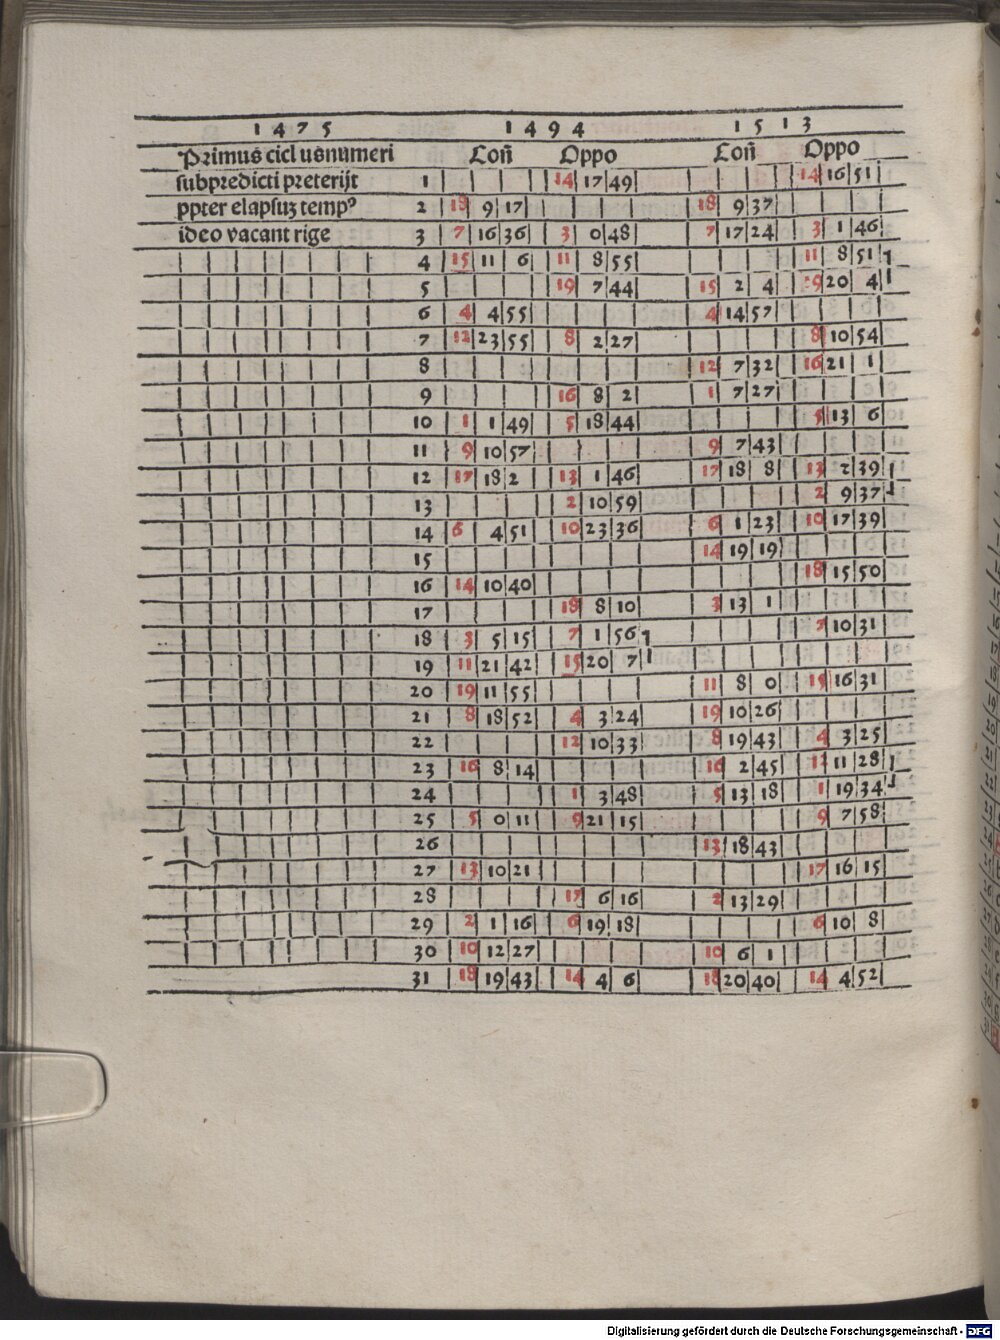 1 4 7 5 1 4 9 4 1 5 1 3
Primus cicl usnumeri Coñ Oppo Coñ Oppo
subpredicti preterijt 1 14 17 49 14 16 51
ppter elapsuz tempꝰ 2 18 9 17 18 9 37
ideo vacant rige 3 7 16 36 3 0 48 7 17 24 3 1 46
4 15 11 6 11 8 55 11 8 51
5 19 7 44 15 2 4 19 20 4
6 4 4 55 4 14 57
7 12 23 55 8 2 27 8 10 54
8 12 7 32 16 21 1
9 16 8 2 1 7 27
10 1 1 49 5 18 44 5 13 6
11 9 10 57 9 7 43
12 17 18 2 13 1 46 17 18 8 13 2 39
13 2 10 59 2 9 37
14 6 4 51 10 23 36 6 1 23 10 17 39
15 14 19 19
16 14 10 40 18 15 50
17 18 8 10 3 13 1
18 3 5 15 7 1 56 7 10 31
19 11 21 42 15 20 7
20 19 11 55 11 8 0 15 16 31
21 8 18 52 4 3 24 19 10 26
22 12 10 33 8 19 43 4 3 25
23 16 8 14 16 2 45 12 11 28
24 1 3 48 5 13 18 1 19 34
25 5 0 11 9 21 15 9 7 58
26 13 18 43
27 13 10 21 17 16 15
28 17 6 16 2 13 29
29 2 1 16 6 19 18 6 10 8
30 10 12 27 10 6 1
31 18 19 43 14 4 6 18 20 40 14 4 52
Digitalisierung gefördert durch die Deutsche Forschungsgemeinschaft - DFG